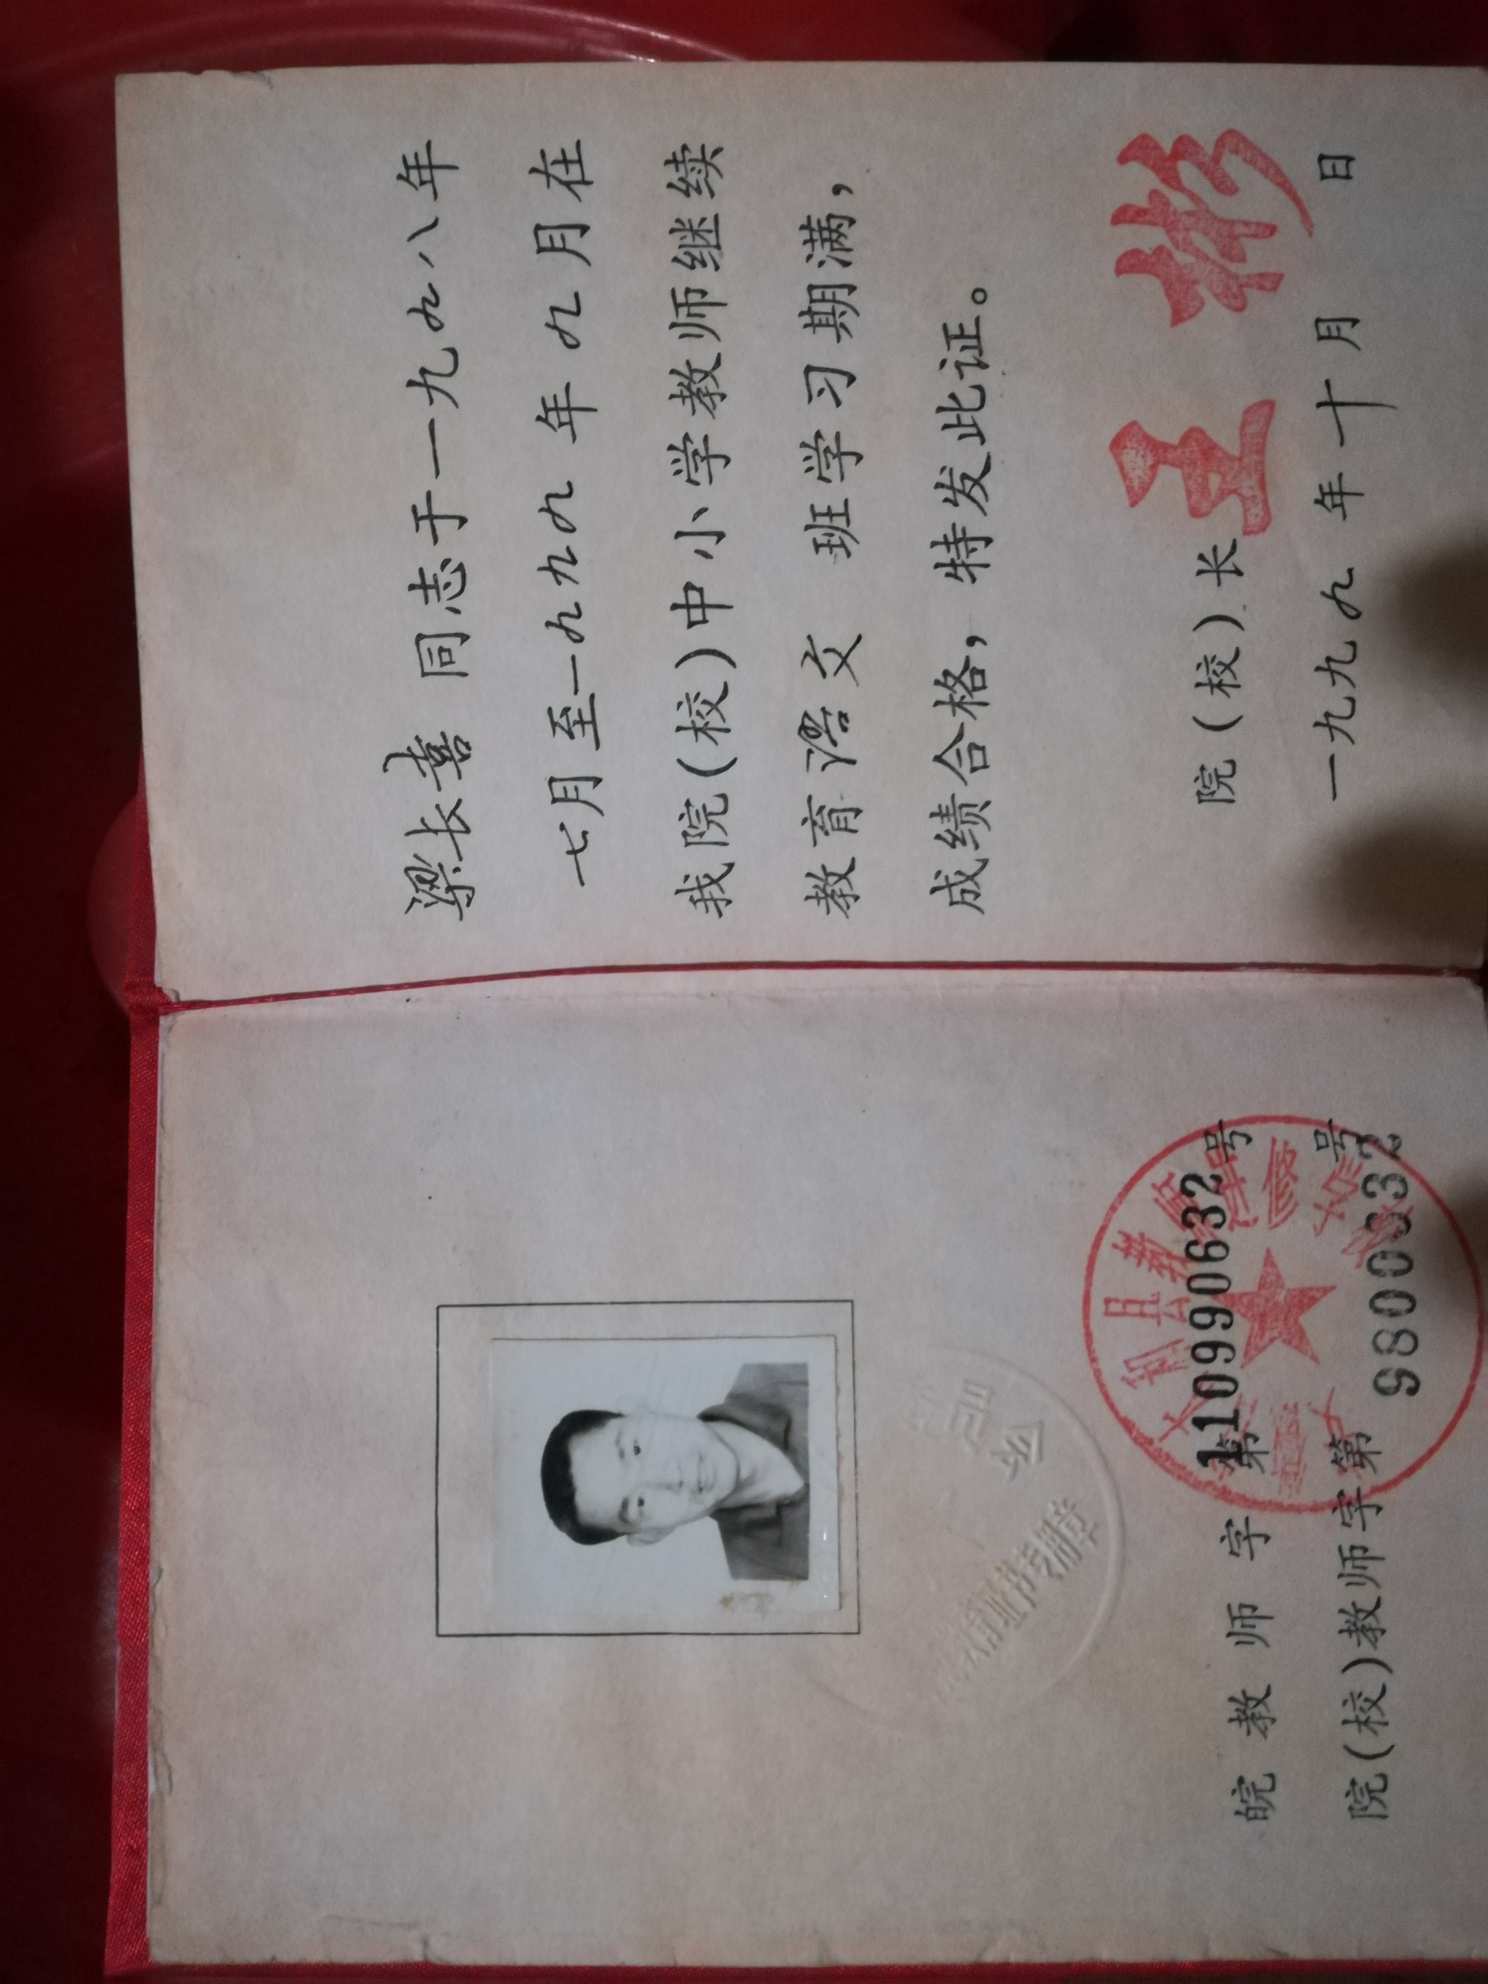 皖教师字第110990632号
院(校)教师字第9800032号
梁长喜 同志于一九九八年
七月至一九九九年九月在
我院(校)中小学教师继续
教育语文 班学习期满,
成绩合格,特发此证。
院(校)长 王彬
一九九九年十月 日